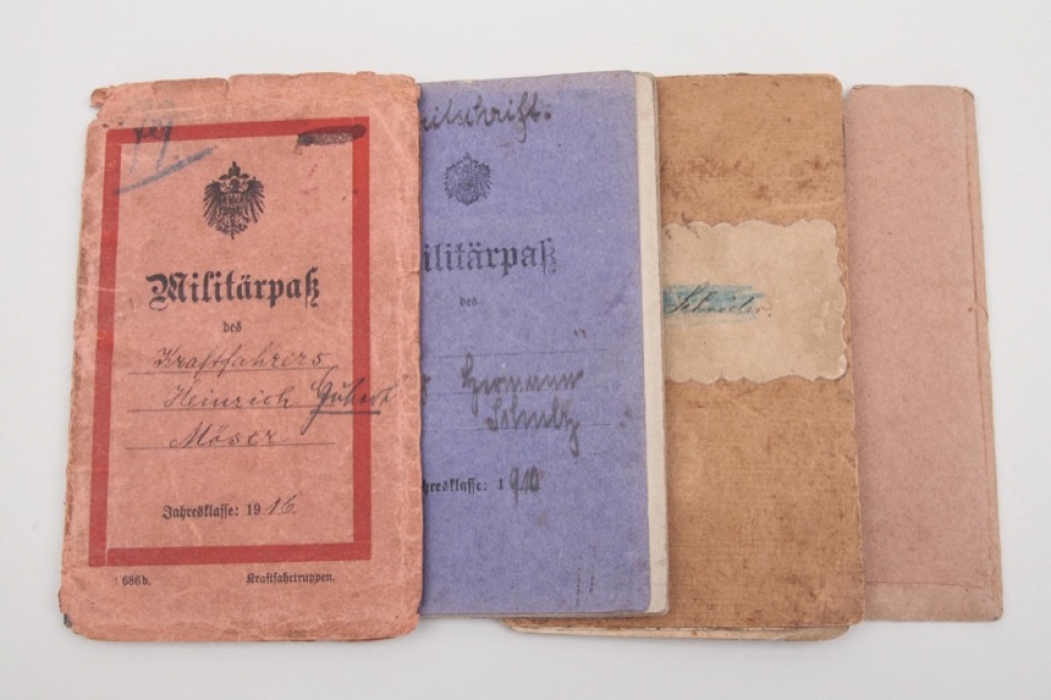 Militärpaß
des
Kraftfahrers
Heinrich
Möser
Jahresklasse: 1916.
686b. Kraftfahrtruppen.
ilitärpaß
des
Hermann
Schulz
hresklasse: 1910
Schröder.